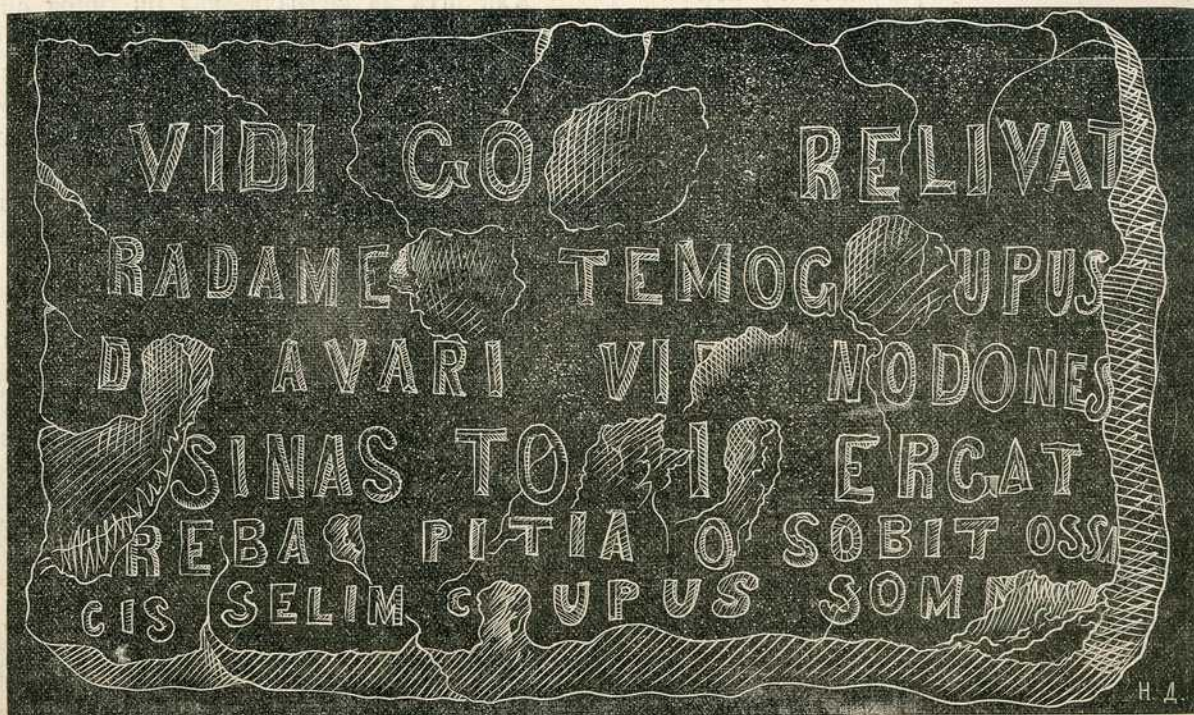 VIDI GO RELIVAT
RADAME TEMOG UPUS
D AVARI VI NODONES
SINAS TO I ERGAT
REBA PITIA O SOBIT OSSA
CIS SELIM C UPUS SOM
Н. Д.